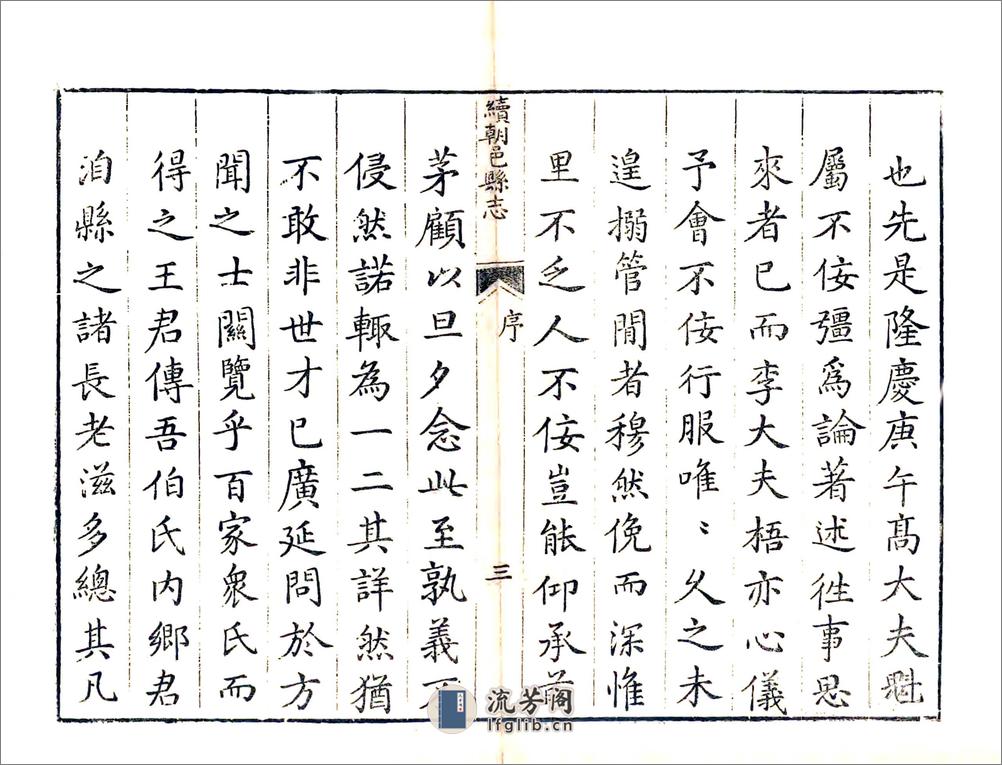 也先是隆慶庚午高大夫魁
屬不佞彊爲論著述徃事思
來者已而李大夫梧亦心儀
予會不佞行服唯〻久之未
遑搦管閒者穆然俛而深惟
里不乏人不佞豈能仰承前
續朝邑縣志
序
三
茅顧以旦夕念此至孰義不
侵然諾輙為一二其詳然猶
不敢非世才已廣延問於方
聞之士關覽乎百家衆氏而
得之王君傳吾伯氏内鄉君
洎縣之諸長老滋多總其凡
流芳阁
lfglib.cn